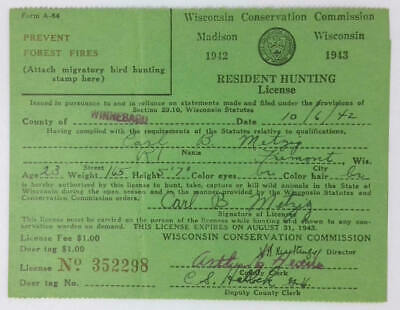 Form A-64
PREVENT
FOREST FIRES
(Attach migratory bird hunting
stamp here)
Wisconsin Conservation Commission
Madison Wisconsin
1942 1943
RESIDENT HUNTING
License
Issued in pursuance to and in reliance on statements made and filed under the provisions of
Section 29.10, Wisconsin Statutes
County of WINNEBAGO Date 10/6/42
Having complied with the requirements of the Statutes relative to qualifications,
Carl B. Metzig
Name
R1 Fremont, Wis.
Street
Age 23 Weight 165 5' 7" Color eyes br Color hair br
is hereby authorized by this license to hunt, take, capture or kill wild animals in the State of
Wisconsin during the open season and in the manner provided by the Wisconsin Statutes and
Conservation Commission orders.
Carl B Metzig
Signature of Licensee
This license must be carried on the person of the licensee while hunting and shown to any
conservation warden on demand. THIS LICENSE EXPIRES ON AUGUST 31, 1943.
License Fee $1.00 WISCONSIN CONSERVATION COMMISSION
Deer tag $1.00
Director
License No 352298
County Clerk
Deer tag No.
C. S.
Deputy County Clerk